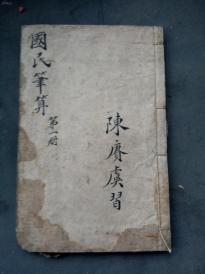 國民筆算
第一册
陳賡虞習